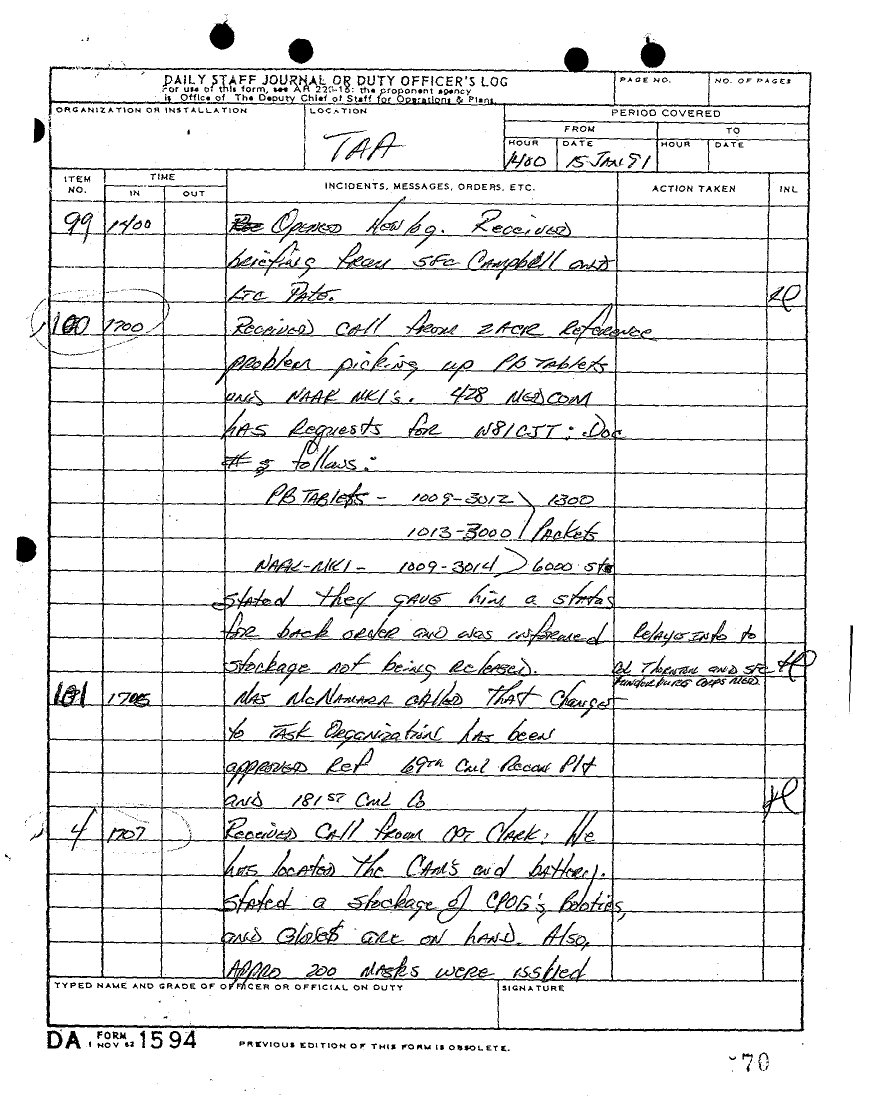 DAILY STAFF JOURNAL OR DUTY OFFICER'S LOG
For use of this form, see AR 220-15; the proponent agency
is Office of The Deputy Chief of Staff for Operations & Plans.
PAGE NO.
NO. OF PAGES
ORGANIZATION OR INSTALLATION
LOCATION
TAA
PERIOD COVERED
FROM
TO
HOUR
DATE
HOUR
DATE
1400
15 JAN 91
ITEM NO.
TIME
IN
OUT
INCIDENTS, MESSAGES, ORDERS, ETC.
ACTION TAKEN
INL
99 1400 Opened New Log. Received
briefing from SFC Campbell and
LTC Pate.
100 1700 Received call from 2ACR Reference
problem picking up PB Tablets
and NAAK MKI's. 428 MEDCOM
has Requests for W81CJT: Doc
# s follows:
PB TABLETS - 1009-3012 } 1300
1013-3000 } Packets
NAAK-MKI - 1009-3014 } 6000
stated they gave him a status
for back order and was informed Relayed info to
stockage not being released. Col Thornton and SFC
Funderburke Corps Med
101 1705 MAJ McNamara called that Changes
to TASK Organization has been
approved Ref 69th Cml Recon Plt
and 181st Cml Co
4 1707 Received call from CPT Clark: He
has located the CAM's and battery.
stated a stockage of CPOG's, Booties,
and Gloves are on hand. Also,
Appro 200 masks were issued
TYPED NAME AND GRADE OF OFFICER OR OFFICIAL ON DUTY
SIGNATURE
DA FORM 1594
1 NOV 62
PREVIOUS EDITION OF THIS FORM IS OBSOLETE.
70